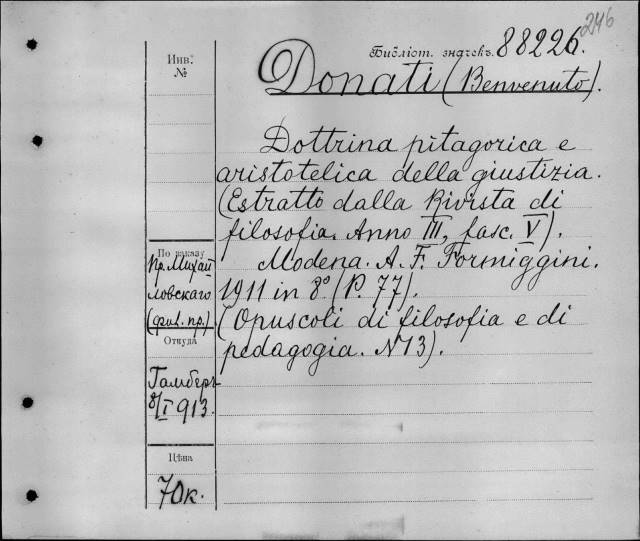 246
Библіот. значекъ. 88226.
Donati (Benvenuto).
Инв.
№
Dottrina pitagorica e
aristotelica della giustizia.
(Estratto dalla Rivista di
filosofia. Anno III, fasc. V).
Modena. A. F. Formiggini.
1911 in 8º (P. 77).
(Opuscoli di filosofia e di
pedagogia. N 13).
По заказу
Пр. Михай
ловскаго
(фил. пр.)
Откуда
Гамберъ
8/I 913.
Цѣна
70к.